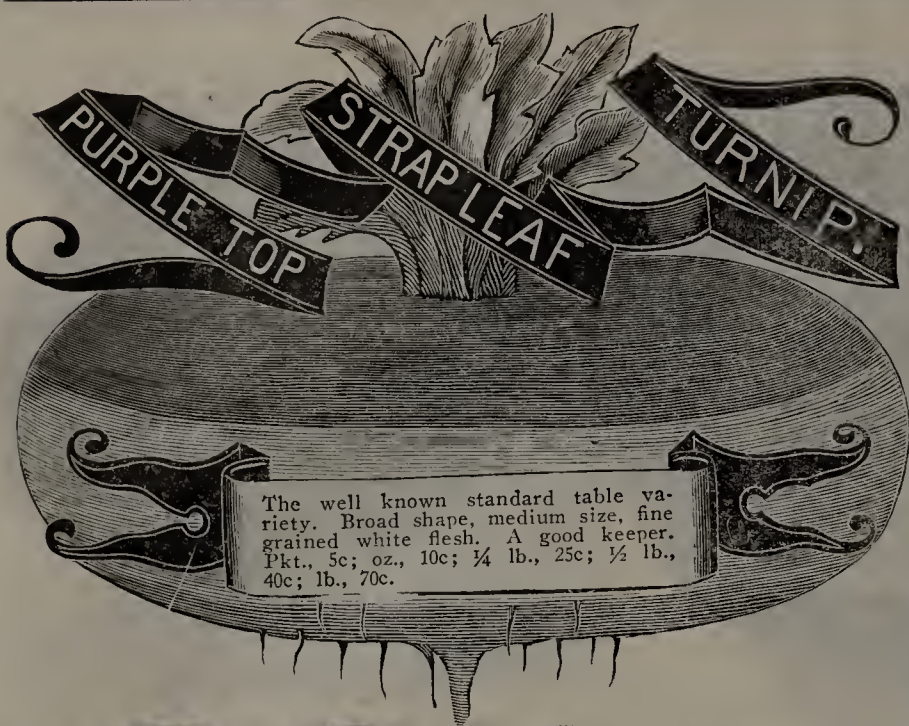 PURPLE TOP
STRAP LEAF
TURNIP.
The well known standard table va-
riety. Broad shape, medium size, fine
grained white flesh. A good keeper.
Pkt., 5c; oz., 10c; ¼ lb., 25c; ½ lb.,
40c; lb., 70c.